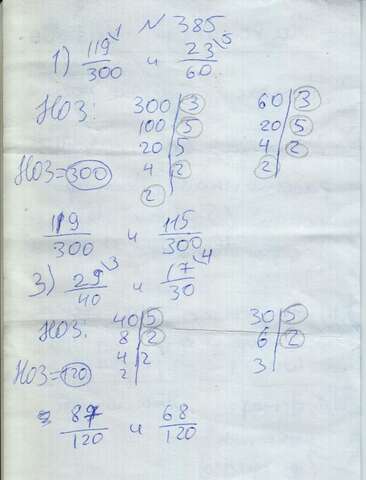 N 385
1) 119/300 \1 и 23/60 \5
НОЗ: 300 | 3 60 | 3
100 | 5 20 | 5
20 | 5 4 | 2
НОЗ=300 4 | 2 2
2
119/300 и 115/300
3) 29/40 \3 и 17/30 \4
НОЗ: 40 | 5 30 | 5
8 | 2 6 | 2
4 | 2 3
НОЗ=120 2
87/120 и 68/120